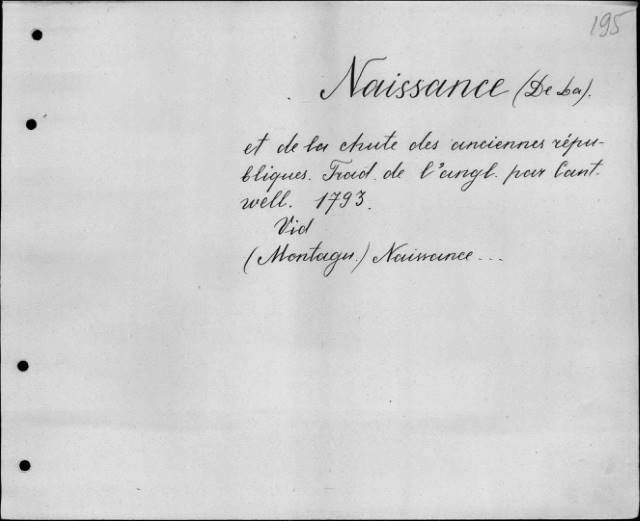 195
Naissance (De La).
et de la chute des anciennes répu-
bliques. Trad. de l'angl. par Cant.
well. 1793.
Vid
(Montagu.) Naissance...